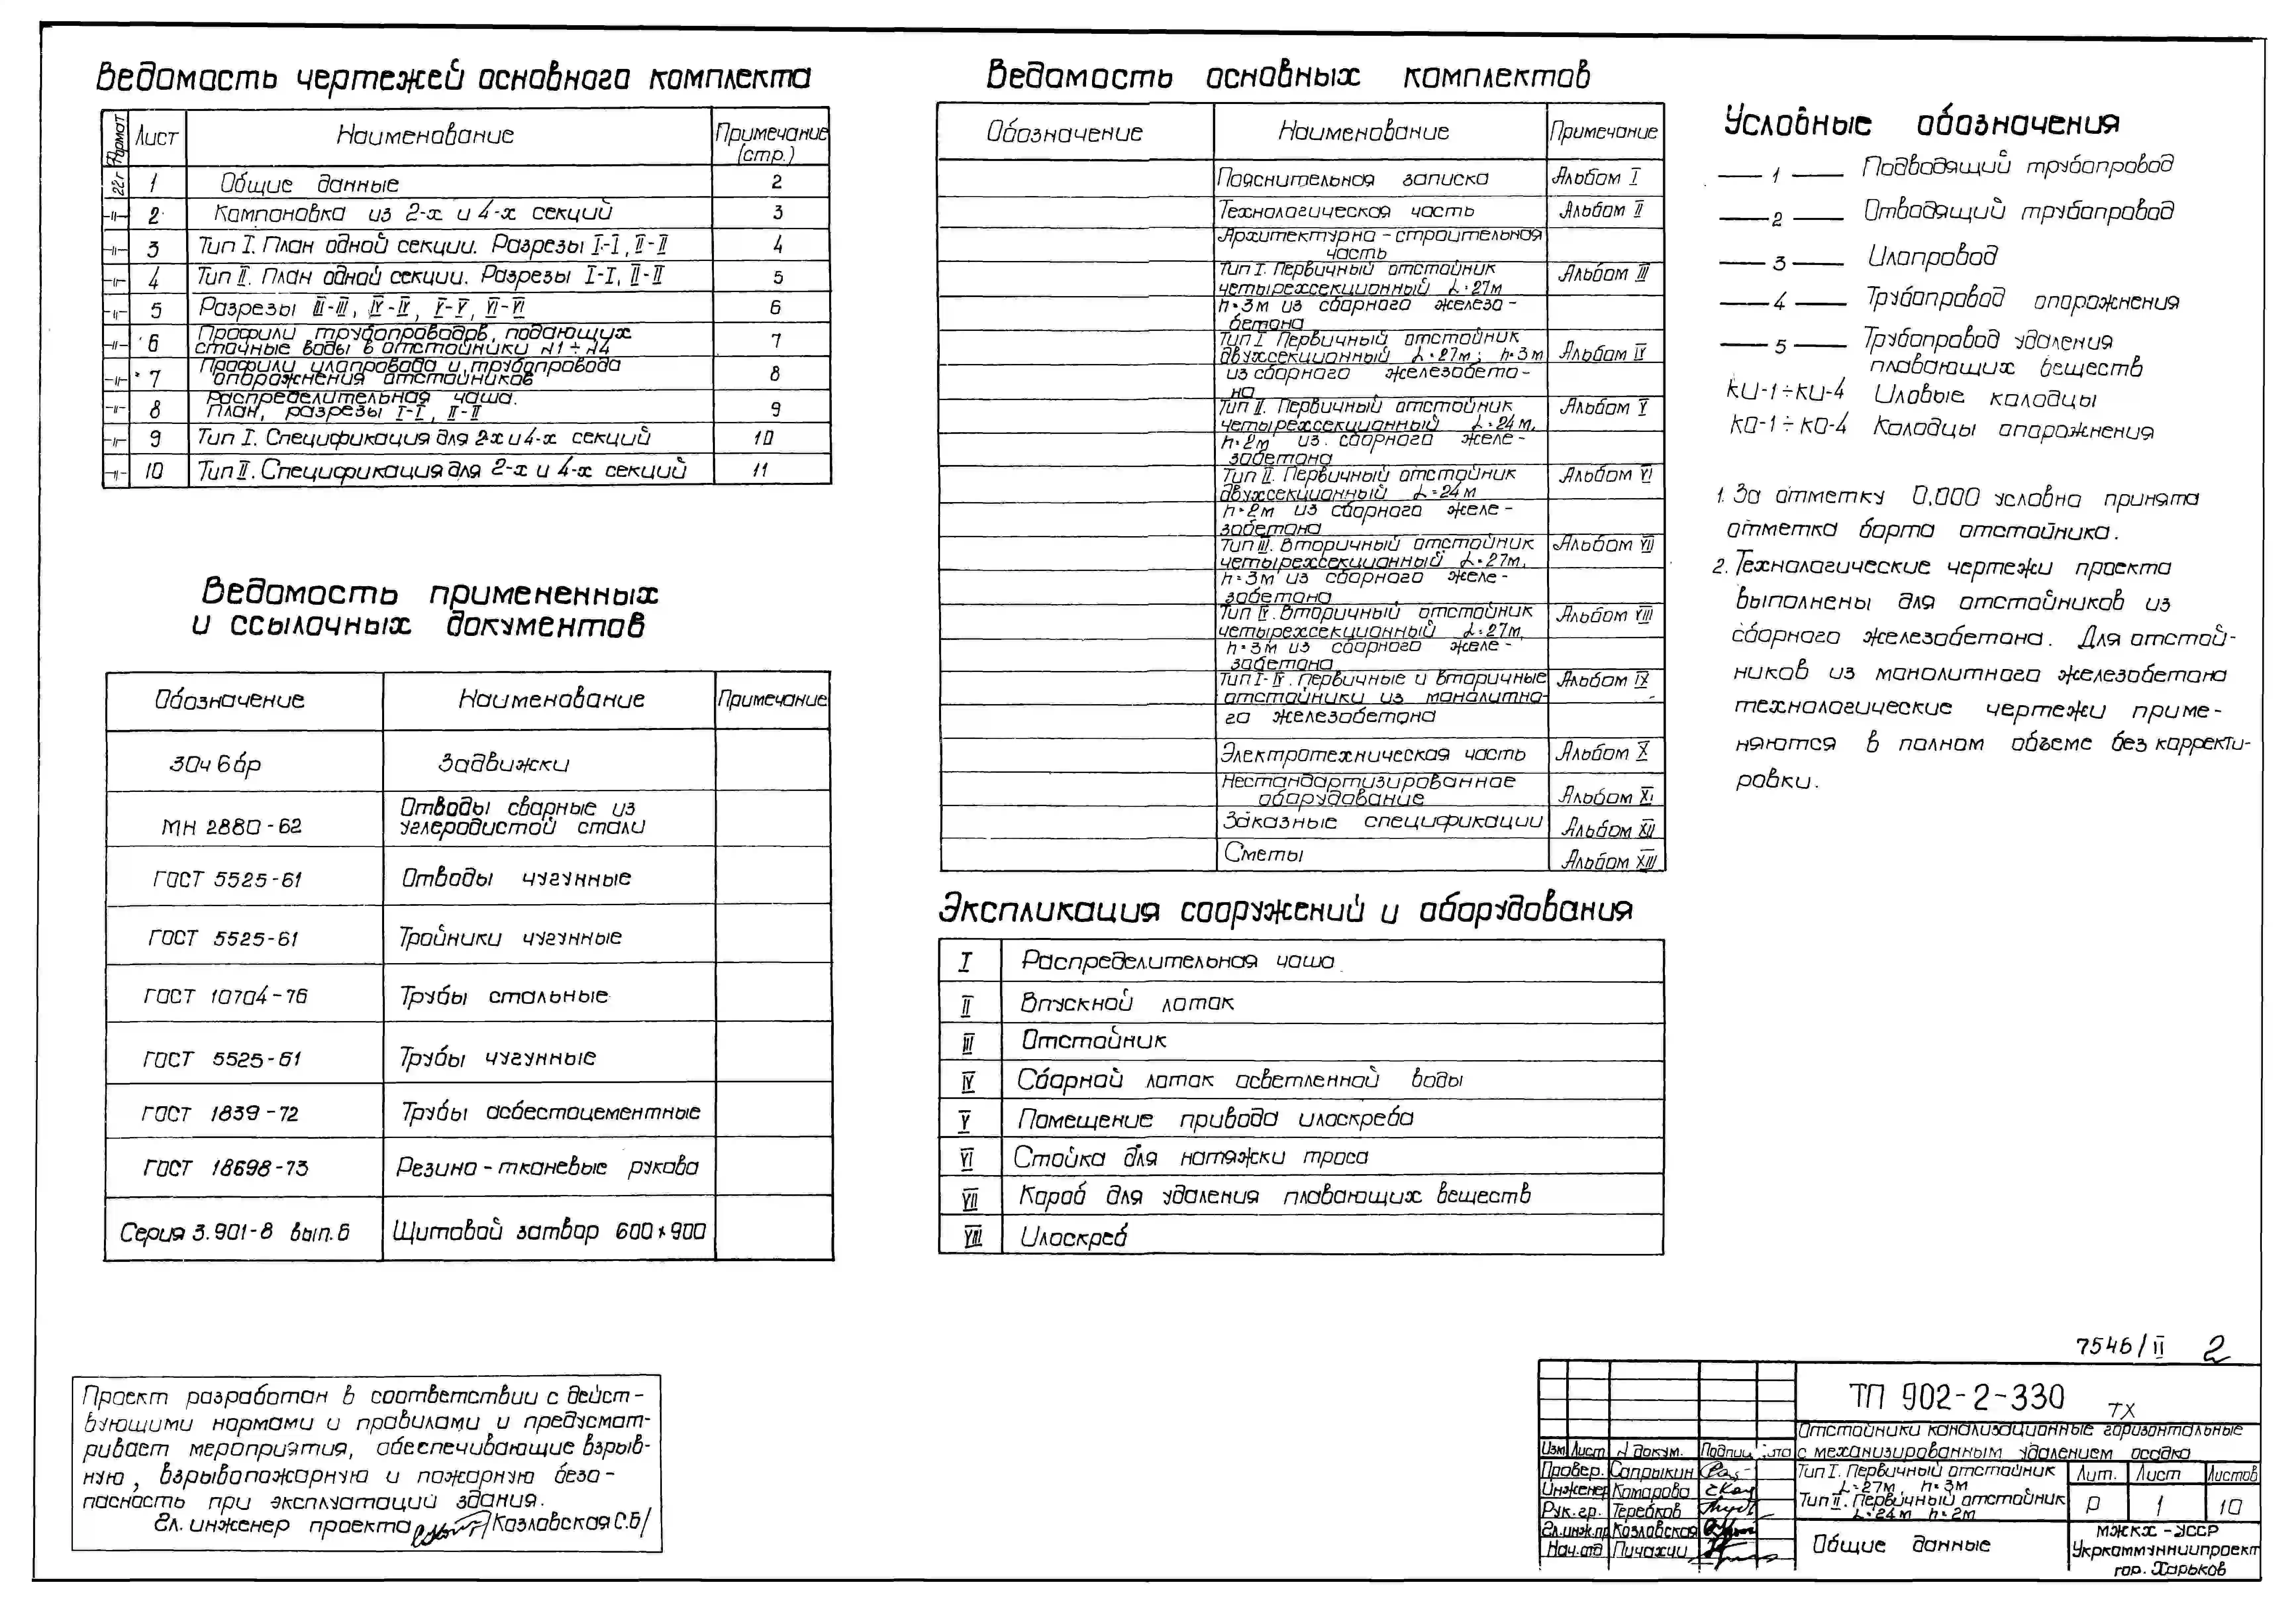 Ведомость чертежей основного комплекта
Формат Лист Наименование Примечание (стр.)
22г 1 Общие данные 2
-//- 2 Компоновка из 2-х и 4-х секций 3
-//- 3 Тип I. План одной секции. Разрезы I-I, II-II 4
-//- 4 Тип II. План одной секции. Разрезы I-I, II-II 5
-//- 5 Разрезы III-III, IV-IV, V-V, VI-VI 6
-//- 6 Профили трубопроводов, подающих
сточные воды в отстойники №1÷№4 7
-//- 7 Профили илопровода и трубопровода
опорожнения отстойников 8
-//- 8 Распределительная чаша.
План, разрезы I-I, II-II 9
-//- 9 Тип I. Спецификация для 2-х и 4-х секций 10
-//- 10 Тип II. Спецификация для 2-х и 4-х секций 11
Ведомость примененных
и ссылочных документов
Обозначение Наименование Примечание
30ч 6бр Задвижки
МН 2880-62 Отводы сварные из
углеродистой стали
ГОСТ 5525-61 Отводы чугунные
ГОСТ 5525-61 Тройники чугунные
ГОСТ 10704-76 Трубы стальные
ГОСТ 5525-61 Трубы чугунные
ГОСТ 1839-72 Трубы асбестоцементные
ГОСТ 18698-73 Резино-тканевые рукава
Серия 3.901-8 вып.6 Щитовой затвор 600×900
Проект разработан в соответствии с дейст-
вующими нормами и правилами и предусмат-
ривает мероприятия, обеспечивающие взрыв-
ную, взрывопожарную и пожарную безо-
пасность при эксплуатаций здания.
Гл. инженер проекта /Козловская С.Б/
Ведомость основных комплектов
Обозначение Наименование Примечание
Пояснительная записка Альбом I
Технологическая часть Альбом II
Архитектурно-строительная
часть
Тип I. Первичный отстойник
четырехсекционный L=27м Альбом III
h=3м из сборного железо-
бетона
Тип I. Первичный отстойник
двухсекционный L=27м; h=3м Альбом IV
из сборного железобето-
на
Тип II. Первичный отстойник
четырехсекционный L=24м, Альбом V
h=2м из сборного желе-
зобетона
Тип II. Первичный отстойник
двухсекционный L=24м Альбом VI
h=2м из сборного желе-
зобетона
Тип III. Вторичный отстойник
четырехсекционный L=27м, Альбом VII
h=3м из сборного желе-
зобетона
Тип IV. Вторичный отстойник
четырехсекционный L=27м, Альбом VIII
h=3м из сборного желе-
зобетона
Тип I-IV. Первичные и вторичные
отстойники из монолитно- Альбом IX
го железобетона
Электротехническая часть Альбом X
Нестандартизированное
оборудование Альбом XI
Заказные спецификации Альбом XII
Сметы Альбом XIII
Экспликация сооружений и оборудования
I Распределительная чаша
II Впускной лоток
III Отстойник
IV Сборной лоток осветленной воды
V Помещение привода илоскреба
VI Стойка для натяжки троса
VII Короб для удаления плавающих веществ
VIII Илоскреб
Условные обозначения
— 1 — Подводящий трубопровод
— 2 — Отводящий трубопровод
— 3 — Илопровод
— 4 — Трубопровод опорожнения
— 5 — Трубопровод удаления
плавающих веществ
КИ-1÷КИ-4 Иловые колодцы
КО-1÷КО-4 Колодцы опорожнения
1. За отметку 0,000 условно принята
отметка борта отстойника.
2. Технологические чертежи проекта
выполнены для отстойников из
сборного железобетона. Для отстой-
ников из монолитного железобетона
технологические чертежи приме-
няются в полном объеме без корректи-
ровки.
7546/II 2
ТП 902-2-330 ТХ
Отстойники канализационные горизонтальные
с механизированным удалением осадка
Изм Лист № докум. Подпис
Провер. Сапрыкин
Инженер Комарова
Рук. гр. Теребков
Гл.инж.пр Козловская
Нач.отд Пичахчи
Тип I. Первичный отстойник
L=27м, h=3м
Тип II. Первичный отстойник
L=24м h=2м
Лит. Лист Листов
Р 1 10
Общие данные
МЖКХ-УССР
Укркоммунниипроект
гор. Харьков